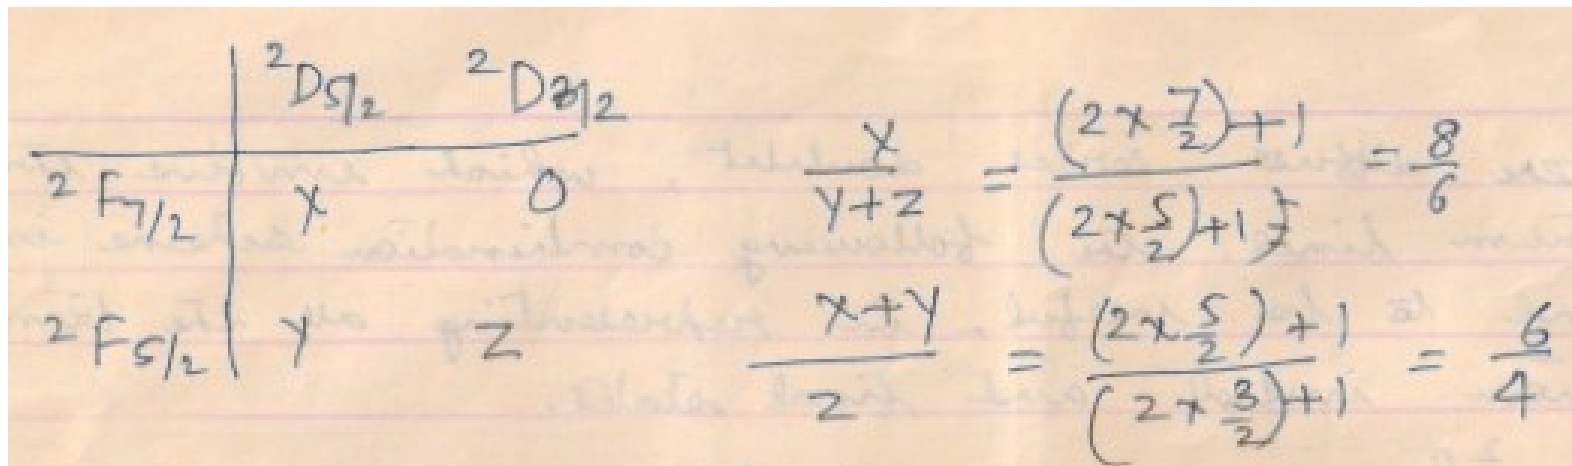 ²D5/2 ²D3/2
²F7/2 x 0
²F5/2 y z
x/(y+z) = ((2×7/2)+1)/((2×5/2)+1) = 8/6
(x+y)/z = ((2×5/2)+1)/((2×3/2)+1) = 6/4